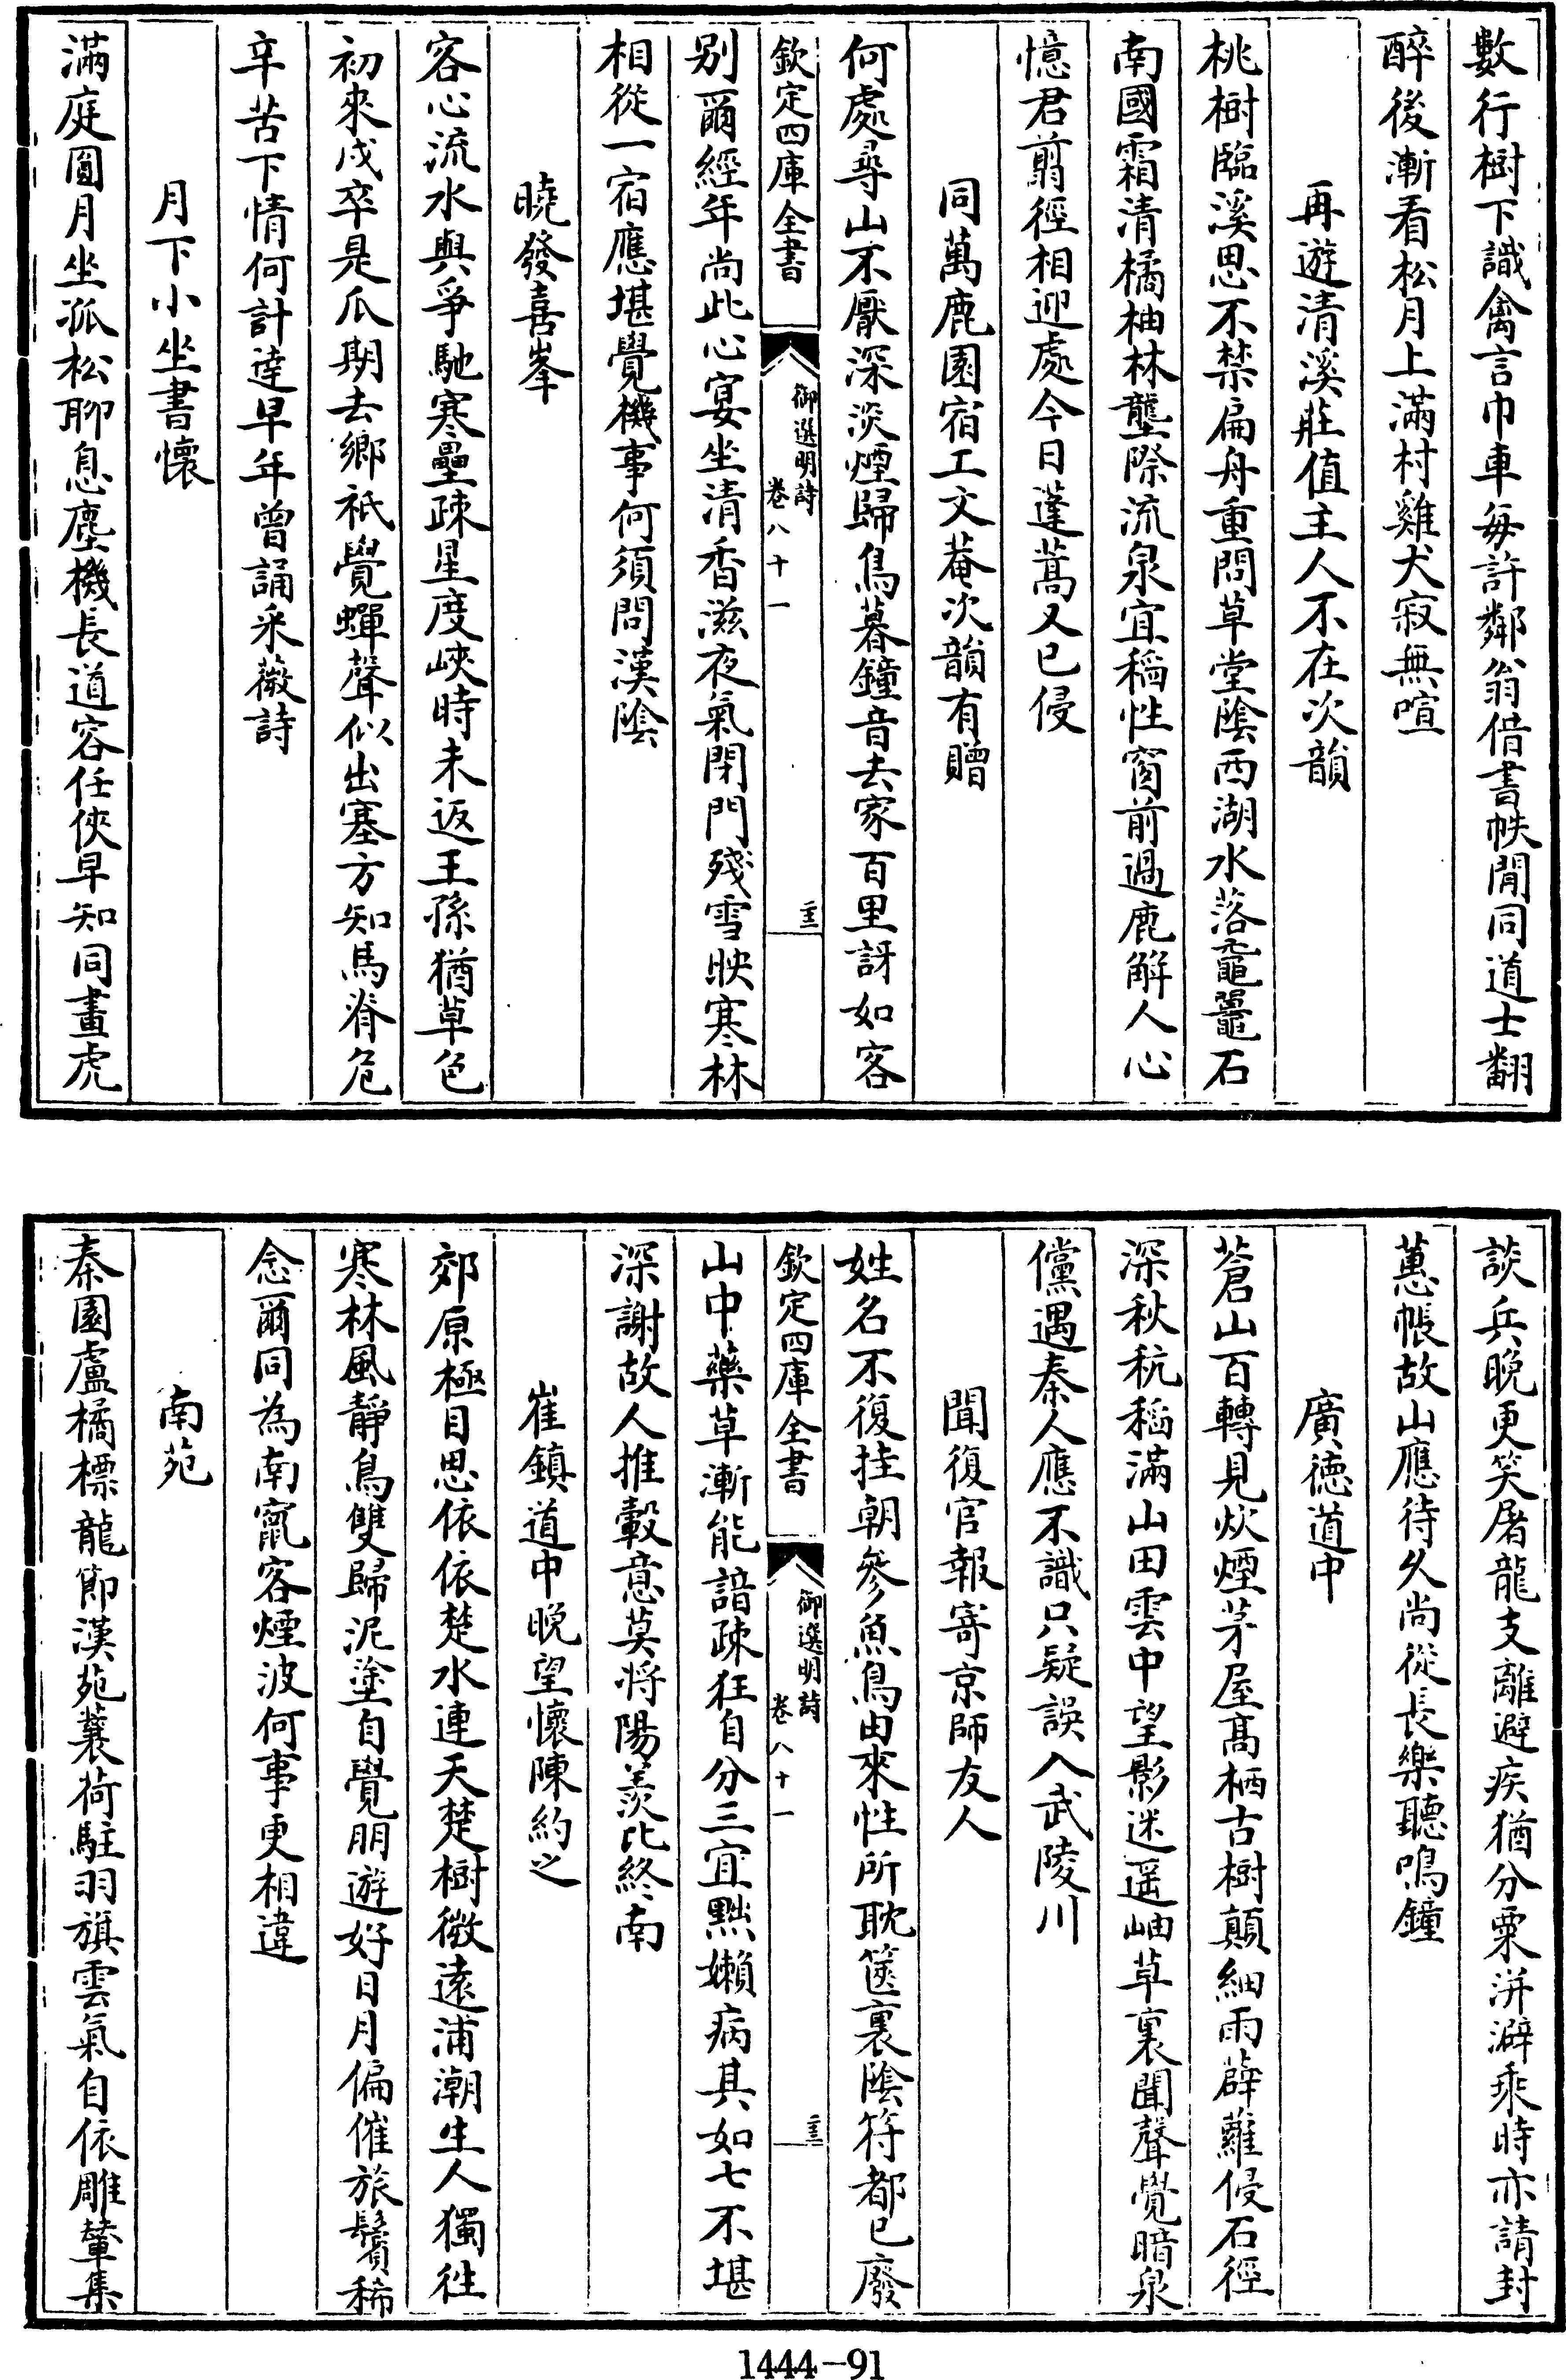 數行樹下識禽言巾車每許鄰翁借書帙閒同道士翻
醉後漸看松月上滿村雞犬寂無喧
再遊清溪莊值主人不在次韻
桃樹臨溪思不禁扁舟重問草堂陰西湖水落黿鼉石
南國霜清橘柚林壟際流泉宜稻性窗前過鹿解人心
憶君翦徑相迎處今日蓬蒿又已侵
同萬鹿園宿工文菴次韻有贈
何處尋山不厭深淡煙歸鳥暮鐘音去家百里訝如客
欽定四庫全書
御選明詩
卷八十一
別爾經年尚此心宴坐清香滋夜氣閉門殘雪映寒林
相從一宿應堪覺機事何須問漢陰
曉發喜峯
客心流水與爭馳寒壘疎星度峽時未返王孫猶草色
初來戍卒是瓜期去鄉祇覺蟬聲似出塞方知馬脊危
辛苦下情何計達早年曾誦采薇詩
月下小坐書懷
滿庭圓月坐孤松聊息塵機長道容任俠早知同畫虎
談兵晚更笑屠龍支離避疾猶分粟洴澼乘時亦請封
蕙帳故山應待久尚從長樂聽鳴鐘
廣德道中
蒼山百轉見炊煙茅屋高栖古樹顛細雨薜蘿侵石徑
深秋秔稻滿山田雲中望影迷遥岫草裏聞聲覺暗泉
儻遇秦人應不識只疑誤入武陵川
聞復官報寄京師友人
姓名不復挂朝參魚鳥由來性所耽篋裏陰符都已廢
欽定四庫全書
御選明詩
卷八十一
山中藥草漸能諳疎狂自分三宜黜嬾病其如七不堪
深謝故人推轂意莫將陽羨比終南
崔鎮道中晚望懷陳約之
郊原極目思依依楚水連天楚樹微遠浦潮生人獨往
寒林風靜鳥雙歸泥塗自覺朋遊好日月偏催旅鬢稀
念爾同為南竄客煙波何事更相違
南苑
秦園盧橘標龍節漢苑蘘荷駐羽旗雲氣自依雕輦集
1444-91